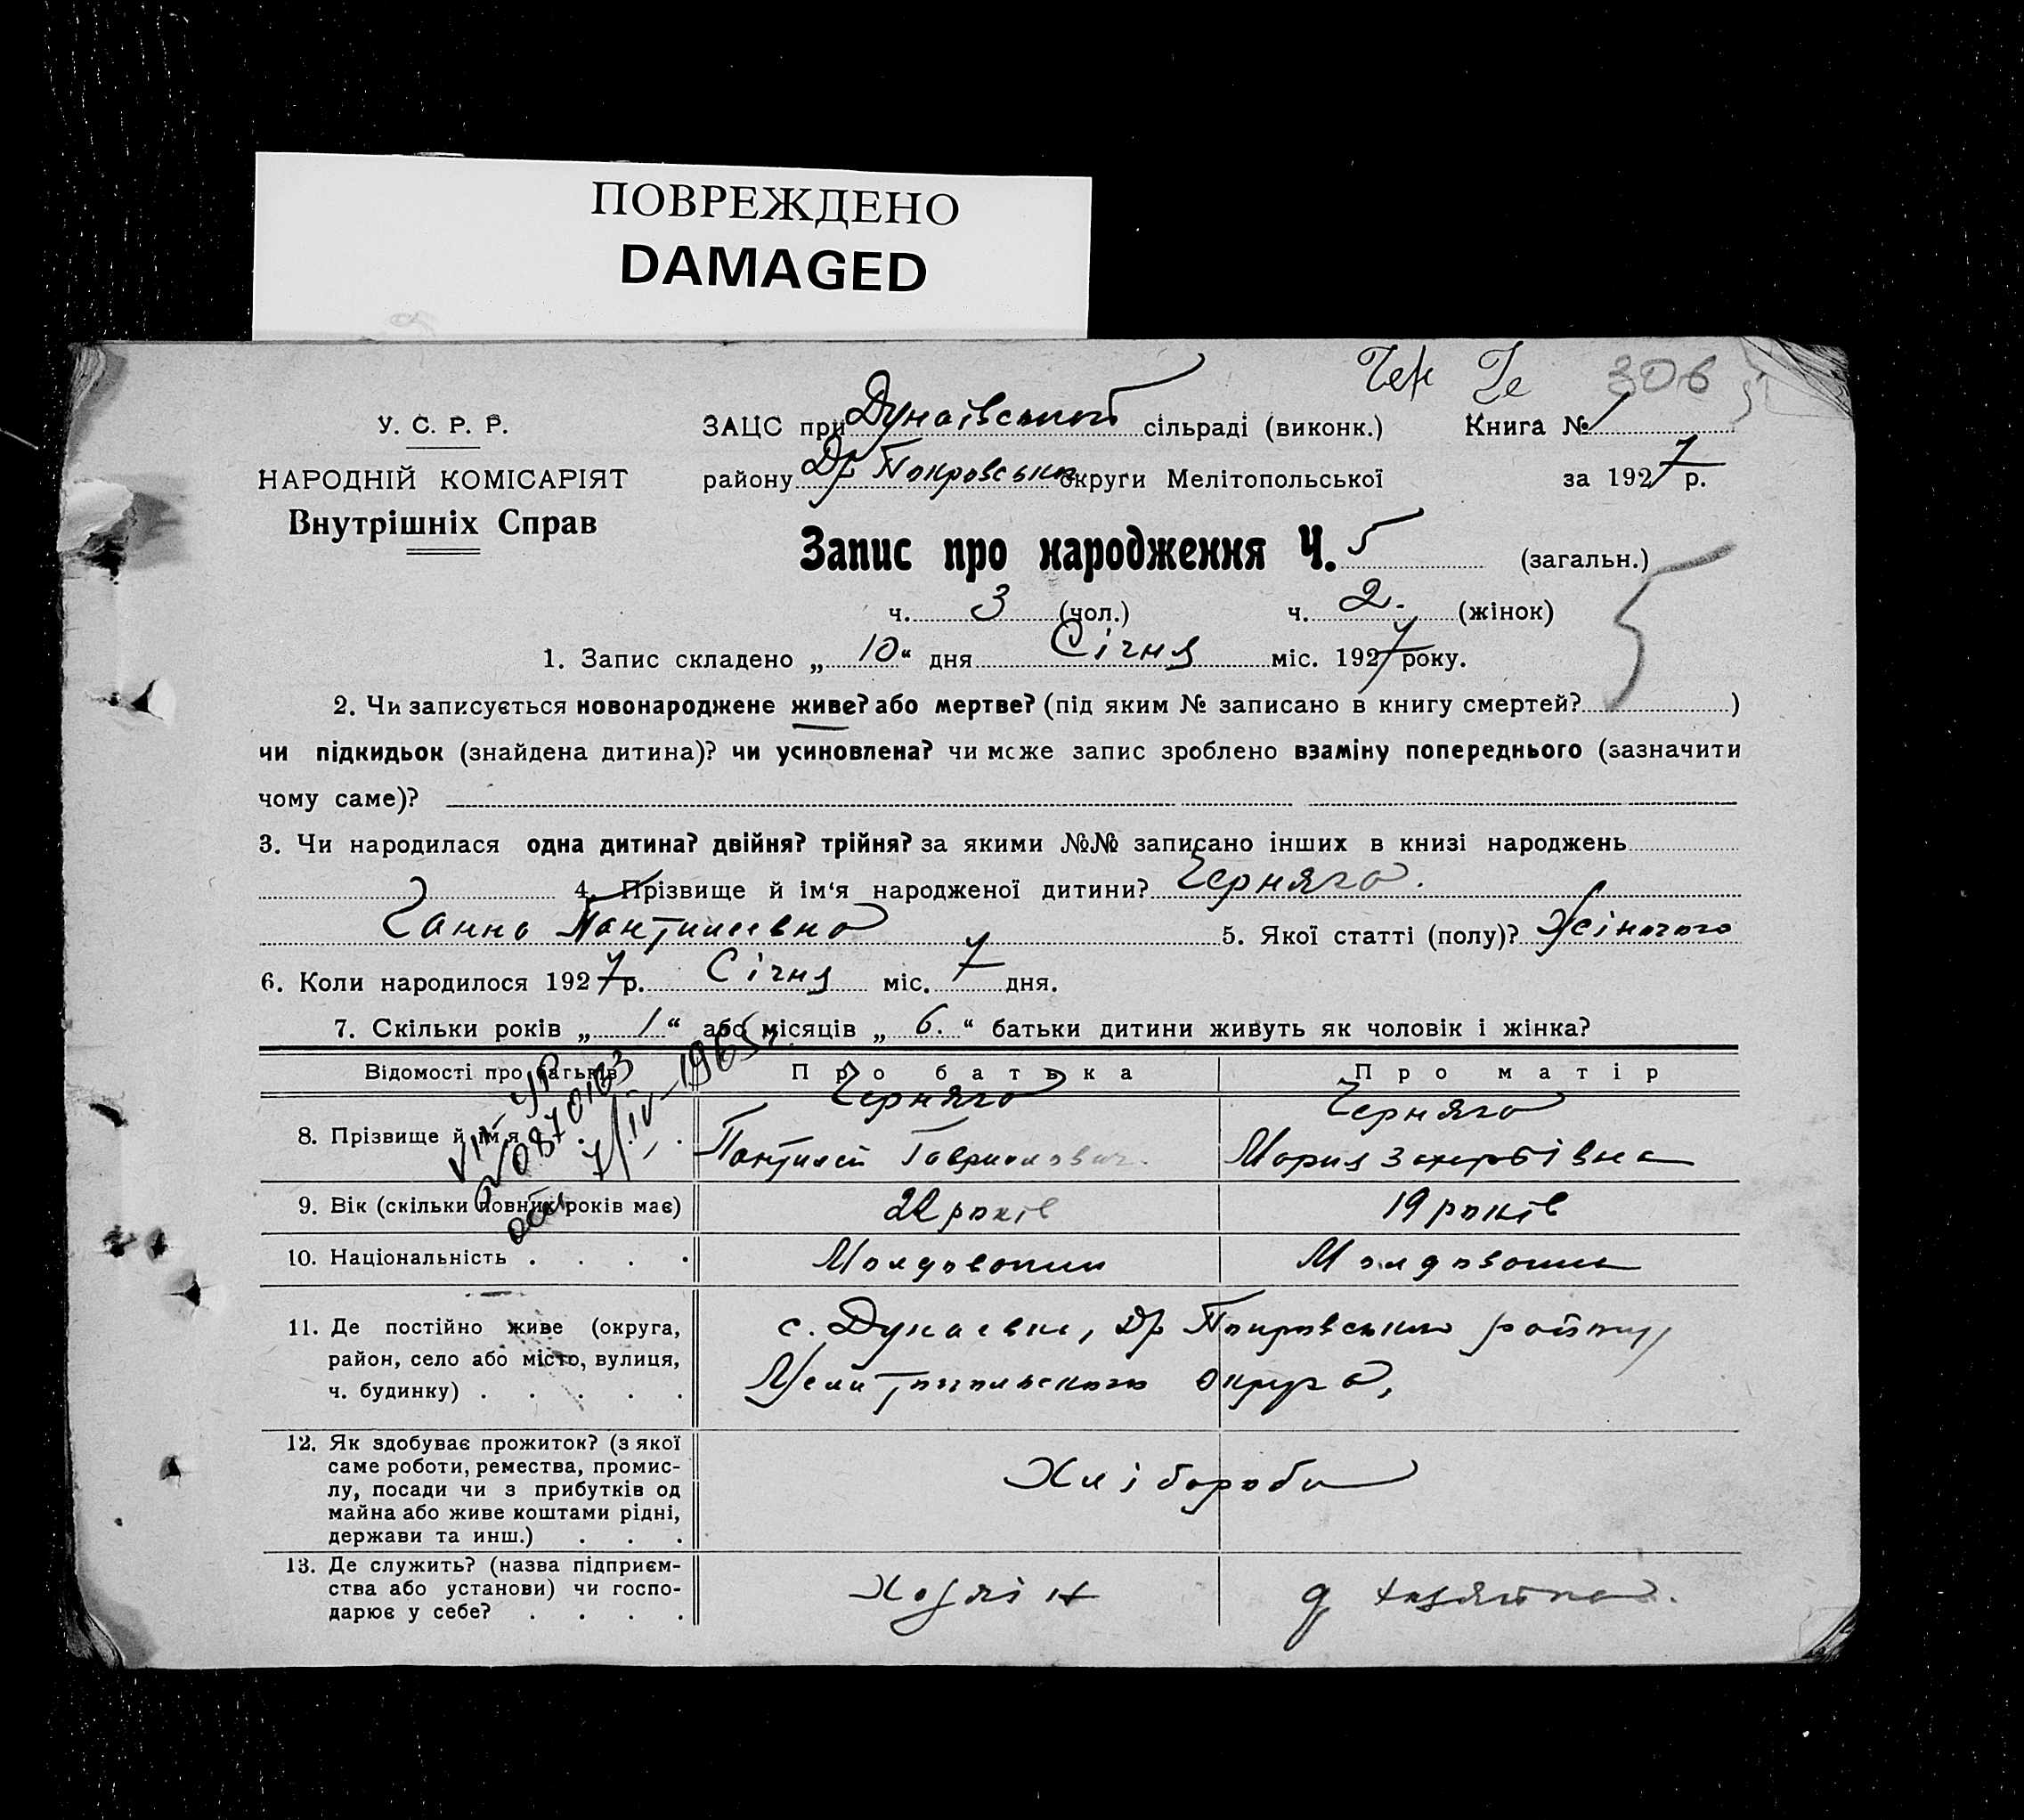 ПОВРЕЖДЕНО
DAMAGED
306
У. С. Р. Р.
ЗАЦС при Дунаївської сільраді (виконк.) Книга № 1
НАРОДНІЙ КОМІСАРІЯТ
району Др Покровського округи Мелітопольської за 1927 р.
Внутрішніх Справ
Запис про народження Ч. 5 (загальн.)
5
ч. 3 (чол.) ч. 2. (жінок)
1. Запис складено „ 10 “ дня Січня міс. 1927 року.
2. Чи записується новонароджене живе? або мертве? (під яким № записано в книгу смертей? )
чи підкидьок (знайдена дитина)? чи усиновлена? чи може запис зроблено взаміну попереднього (зазначити
чому саме)?
3. Чи народилася одна дитина? двійня? трійня? за якими №№ записано інших в книзі народжень
4. Прізвище й ім‘я народженої дитини? Черняга.
Ганна Пантилеевна 5. Якої статті (полу)? Жіночого
6. Коли народилося 1927 р. Січня міс. 7 дня.
7. Скільки років „ 1 “ або місяців „ 6. “ батьки дитини живуть як чоловік і жінка?
Відомості про батьків Про батька Про матір
8. Прізвище й ім‘я Черняга Черняга
Пантилей Гаврилович Мария Захарівна
9. Вік (скільки повних років має) 22 років 19 років
10. Національність Молдовани Молдовани
11. Де постійно живе (округа, район, село або місто, вулиця, ч. будинку) с. Дунаевка, Др Покровського району,
Мелитопольского округа,
12. Як здобуває прожиток? (з якої
саме роботи, ремества, промис-
лу, посади чи з прибутків од
майна або живе коштами рідні,
держави та инш.) Хлібороби
13. Де служить? (назва підприєм-
ства або установи) чи госпо-
дарює у себе? Хозяін д хазяйка.